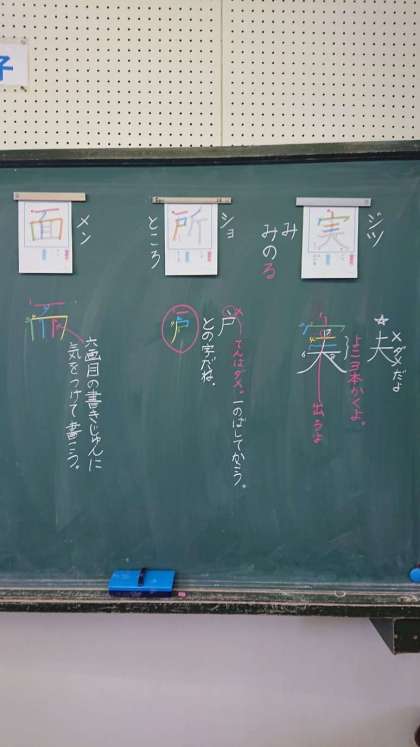 子
実
ジツ
み
みのる
夫
×ダメだよ
よこ3本かくよ。
実
出るよ
所
ショ
ところ
戸
×てんはダメ。一のばしてかこう。
との字だね。
戸
面
メン
六画目の書きじゅんに
気をつけて書こう。